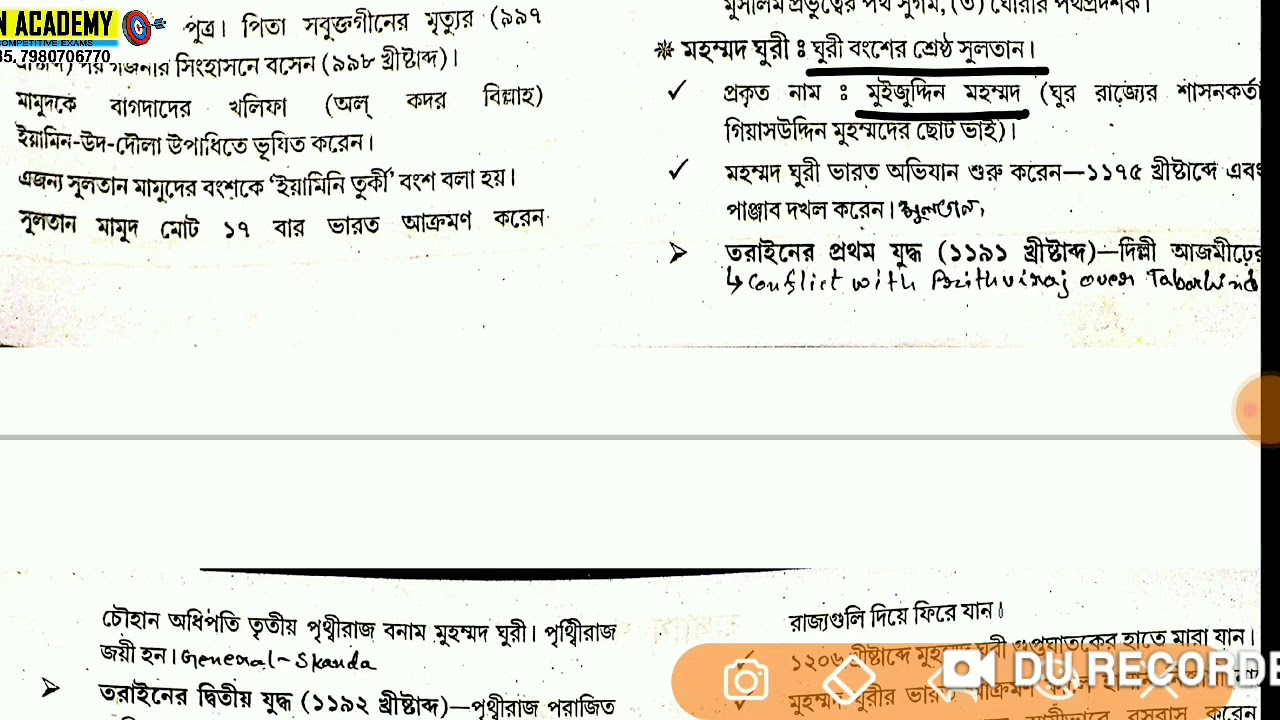 N ACADEMY
COMPETITIVE EXAMS
85. 7980706770
পুত্র। পিতা সবুক্তগীনের মৃত্যুর (৯৯৭
সিংহাসনে বসেন (৯৯৮ খ্রীষ্টাব্দ)।
মামুদকে বাগদাদের খলিফা (অল্ কদর বিল্লাহ)
ইয়ামিন-উদ-দৌলা উপাধিতে ভূষিত করেন।
এজন্য সুলতান মামুদের বংশকে ‘ইয়ামিনি তুর্কী’ বংশ বলা হয়।
সুলতান মামুদ মোট ১৭ বার ভারত আক্রমণ করেন
মুসলিম প্রভুত্বের পথ সুগম, (৩) ঘোরীর পথপ্রদর্শক।
❋ মহম্মদ ঘুরী : ঘুরী বংশের শ্রেষ্ঠ সুলতান।
✓ প্রকৃত নাম : মুইজুদ্দিন মহম্মদ (ঘুর রাজ্যের শাসনকর্তা
গিয়াসউদ্দিন মুহম্মদের ছোট ভাই)।
✓ মহম্মদ ঘুরী ভারত অভিযান শুরু করেন—১১৭৫ খ্রীষ্টাব্দে এবং
পাঞ্জাব দখল করেন। মুলতান,
➢ তরাইনের প্রথম যুদ্ধ (১১৯১ খ্রীষ্টাব্দ)—দিল্লী আজমীঢ়ের
↳ Conflict with Prithviraj over Tabarhind
চৌহান অধিপতি তৃতীয় পৃথ্বীরাজ বনাম মুহম্মদ ঘুরী। পৃথ্বিীরাজ
জয়ী হন। General - Skanda
➢ তরাইনের দ্বিতীয় যুদ্ধ (১১৯২ খ্রীষ্টাব্দ)—পৃথ্বীরাজ পরাজিত
রাজ্যগুলি দিয়ে ফিরে যান।
✓ ১২০৬ খ্রীষ্টাব্দে মুহম্মদ ঘুরী গুপ্তঘাতকের হাতে মারা যান।
মুহম্মদ ঘুরীর ভারত আক্রমণ
বসবাস করেন
DU RECORDE